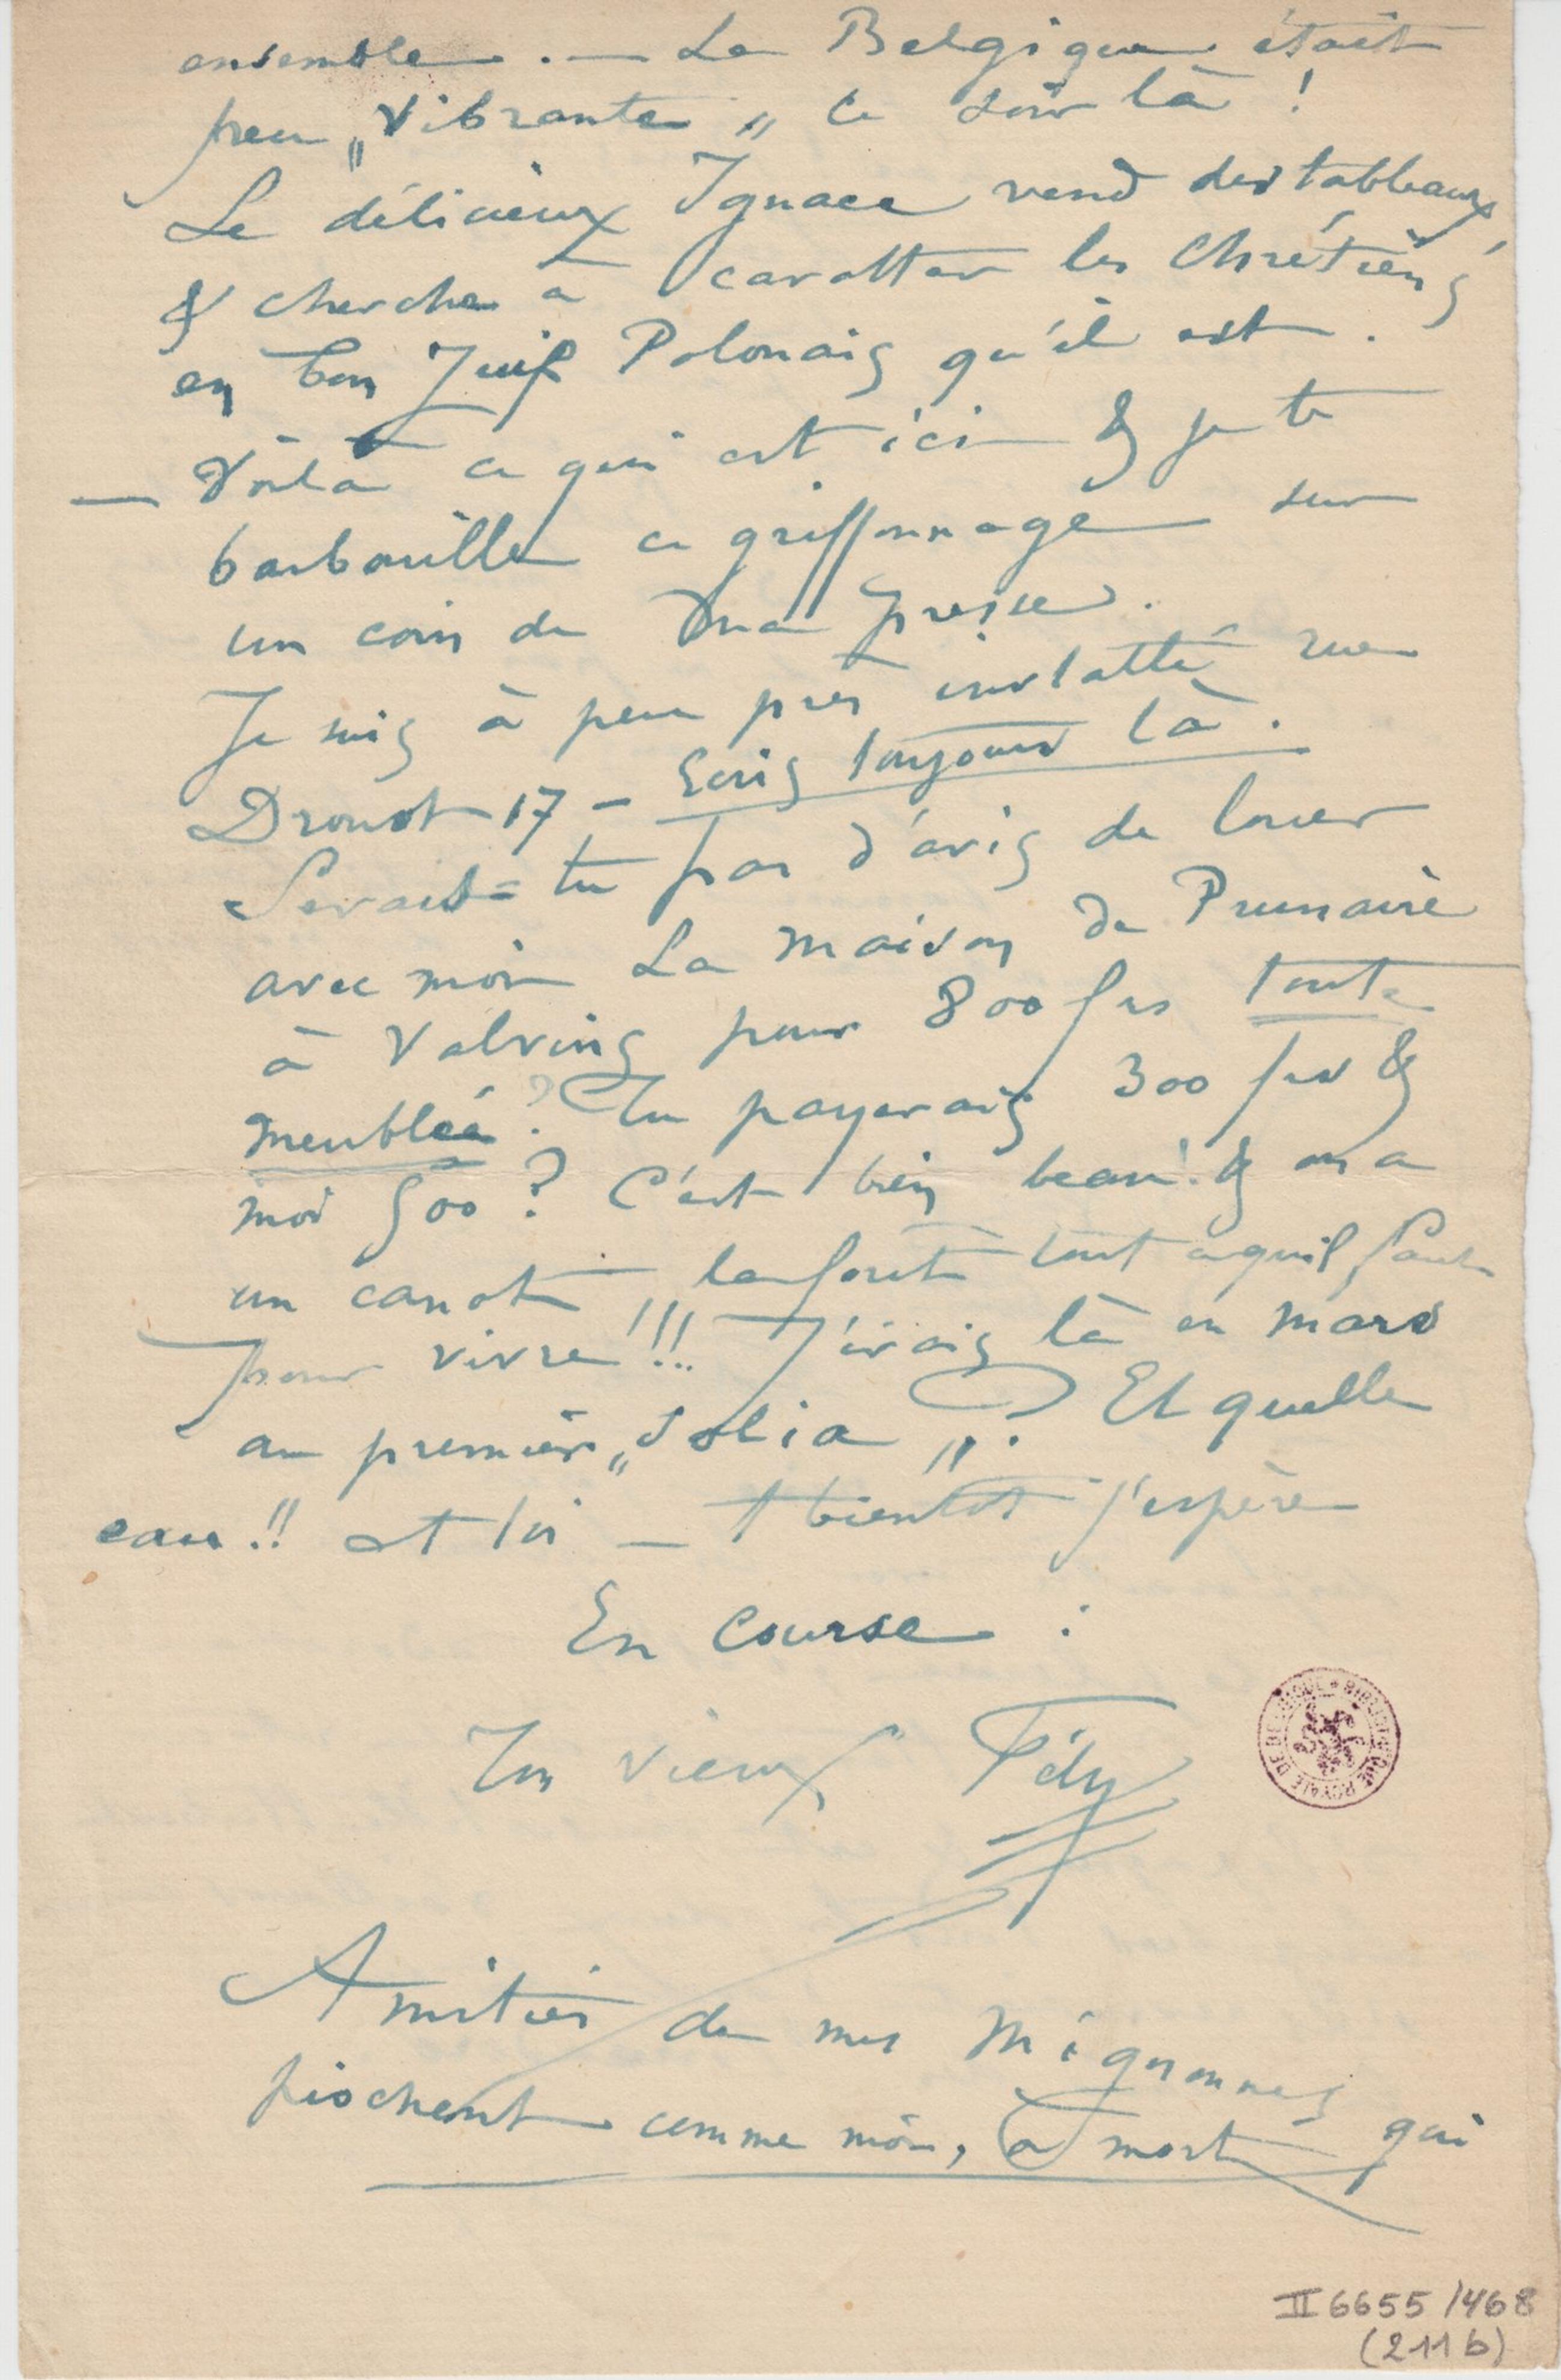 ensemble. — La Belgique était
peu „vibrante„ ce soir là !
Le délicieux Ignace vend des tableaux,
& cherche à carotter les Chrétiens
en bon Juif Polonais qu'il est.
— Voila ce qui est ici & je te
barbouille ce griffonnage sur
un coin de ma presse.
Je suis à peu près installé rue
Drouot 17 – Ecris toujours là.
Serais=tu pas d'avis de louer
avec moi La maison de Prunaire
à Valvins pour 800 frs toute
meublée ? Tu payerais 300 frs &
moi 500 ? C'est bien beau ! & on a
un canot, la forêt tout ce quil faut
pour vivre !!!... J'irais là en mars
au premier „solia„ ? Et quelle
eau !! et toi — A bientôt j'espère
En Course :
Ton vieux Fély
Amitiés de mes Mignonnes qui
piochent comme moi, à mort
BIBLIOTHÈQUE ROYALE DE BELGIQUE
II 6655 /468
(211 b)